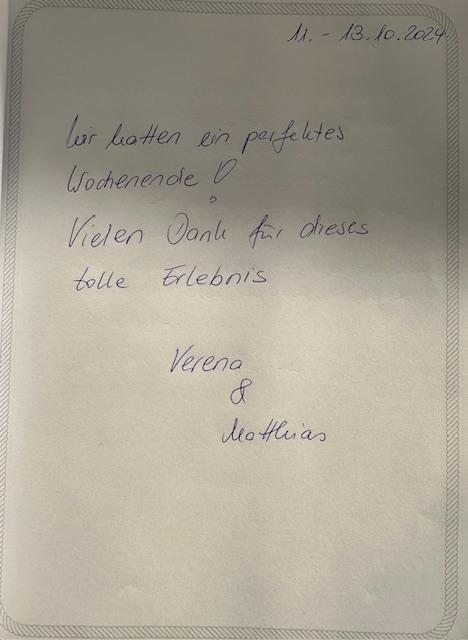 11. - 13.10.2024
Wir hatten ein perfektes
Wochenende !
Vielen Dank für dieses
tolle Erlebnis
Verena
&
Matthias